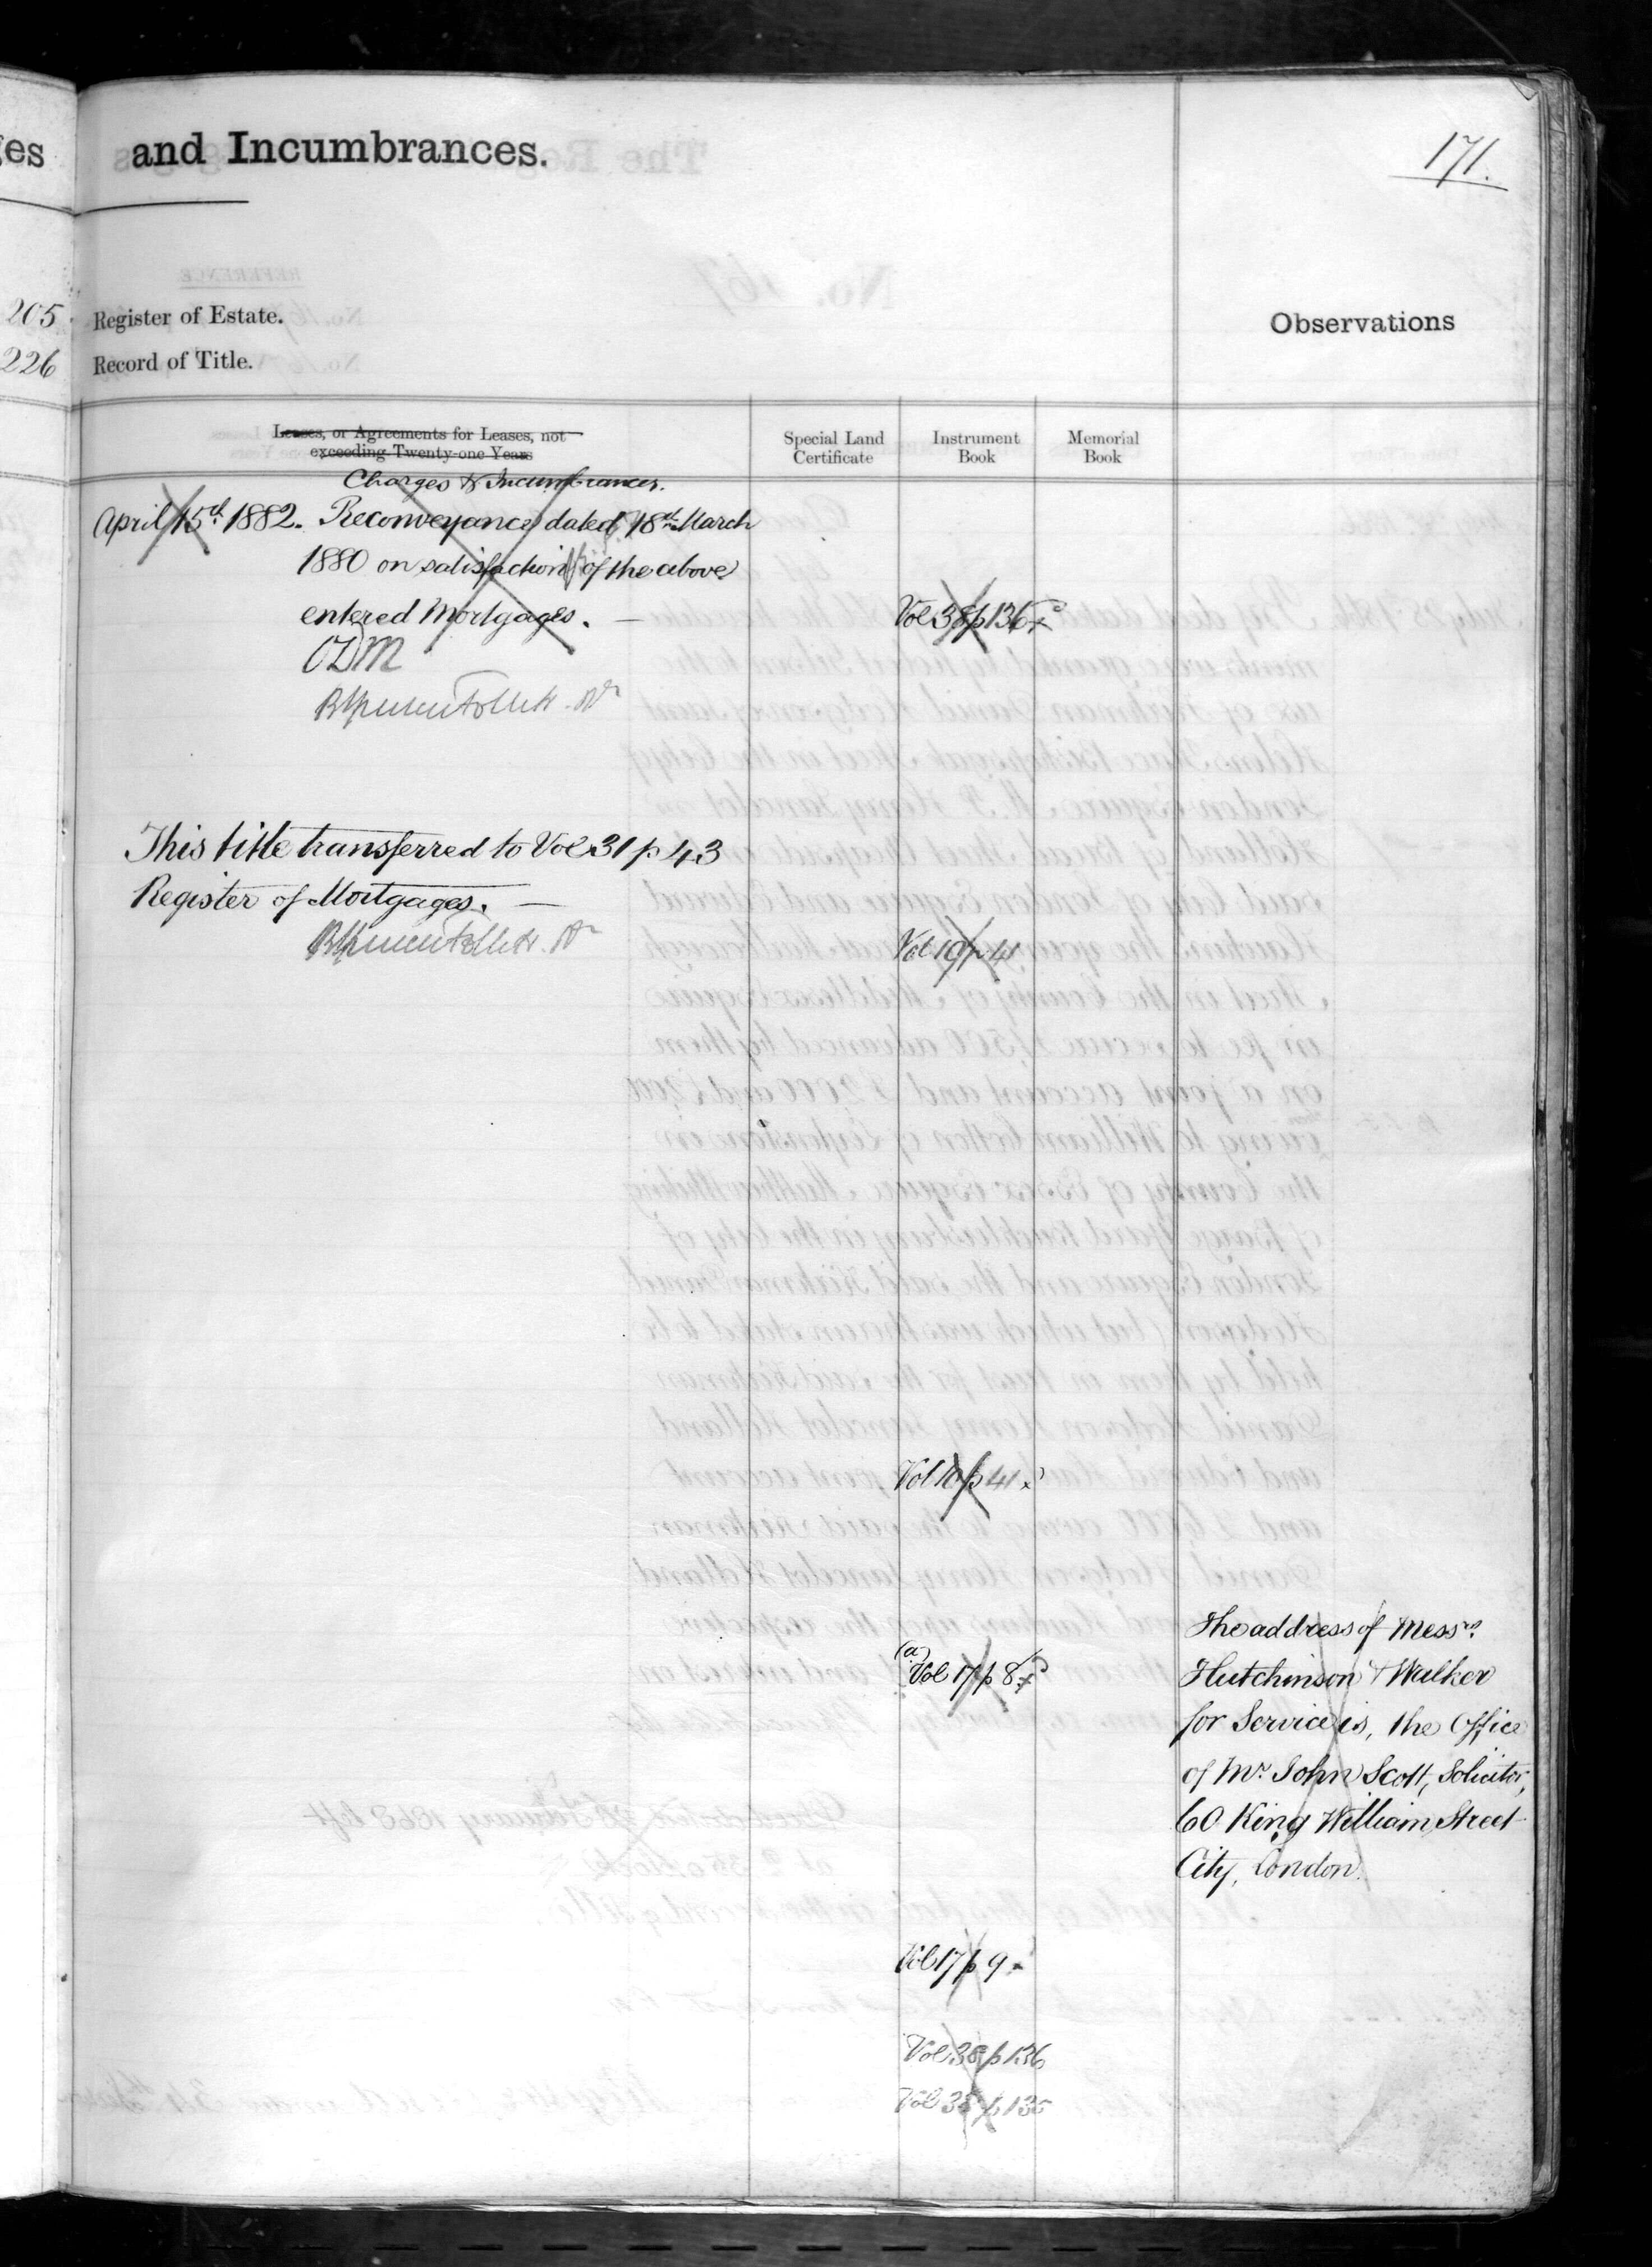 ges and Incumbrances.
171.
205 Register of Estate.
226 Record of Title.
Observations
Leases, or Agreements for Leases, not
exceeding Twenty-one Years
Charges & Incumbrances.
Special Land
Certificate
Instrument
Book
Memorial
Book
April 15th 1882. Reconveyance dated 18th March
1880 on satisfaction of the above
entered Mortgages. —
Vol 38 p 136
ODM
This title transferred to Vol 31 p 43
Register of Mortgages. —
Vol 10 p 41
Vol 10 p 41
(a)
Vol 17 p 8
The address of Messrs.
Hutchinson & Walker
for Service is, the Office
of Mr. John Scott, Solicitor,
60 King William Street
City, London.
Vol 17 p 9
Vol 38 p 136
Vol 38 p 135